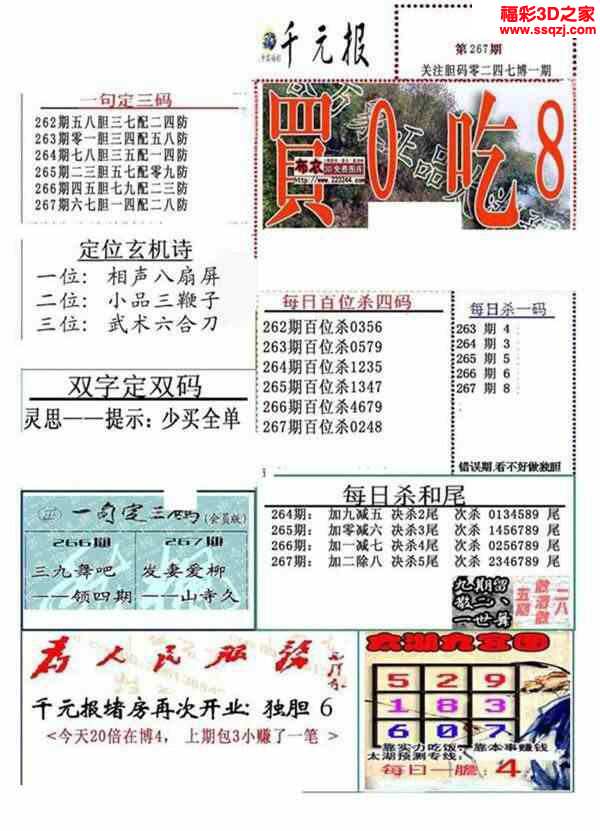 福彩3D之家
www.ssqzj.com
千元报
第267期
关注胆码零二四七博一期
一句定三码
262期五八胆三七配二四防
263期零一胆三四配五八防
264期七八胆三五配一四防
265期二三胆五七配零九防
266期四五胆七九配二三防
267期六七胆一四配二八防
買0吃8
布衣
3D免费图库
www.223344.com
定位玄机诗
一位: 相声八扇屏
二位: 小品三鞭子
三位: 武术六合刀
每日百位杀四码
262期百位杀0356
263期百位杀0579
264期百位杀1235
265期百位杀1347
266期百位杀4679
267期百位杀0248
每日杀一码
263 期 4
264 期 3
265 期 5
266 期 2
267 期 8
错误期,看不好做独胆
双字定双码
灵思——提示: 少买全单
一句定三码(会员版)
266期
三九舞吧
——领四期
267期
发妻爱柳
——山寺久
每日杀和尾
264期: 加九减五 决杀2尾 次杀 0134589 尾
265期: 加零减六 决杀3尾 次杀 1456789 尾
266期: 加一减七 决杀4尾 次杀 0256789 尾
267期: 加二除八 决杀5尾 次杀 2346789 尾
为人民服务
千元报堵房再次开业: 独胆 6
<今天20倍在博4, 上期包3小赚了一笔>
太湖九宫图
5 2 9
1 8 3
6 0 7
靠实力吃饭: 靠本事赚钱
太湖预测专线:
每日一胆: 4